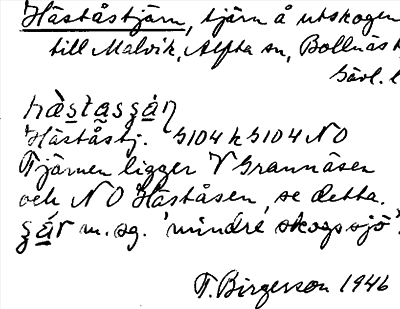 Häståstjärn, tjärn å utskogen
till Malvik, Alfta sn, Bollnäs t
Gävl. l
hästasgáŋ
Häståstj. G104 h G104 NO
Tjärnen ligger V Grannåsen
och NO Håståsen, se detta.
gár m. sg. 'mindre skogssjö'.
F. Birgerson 1946